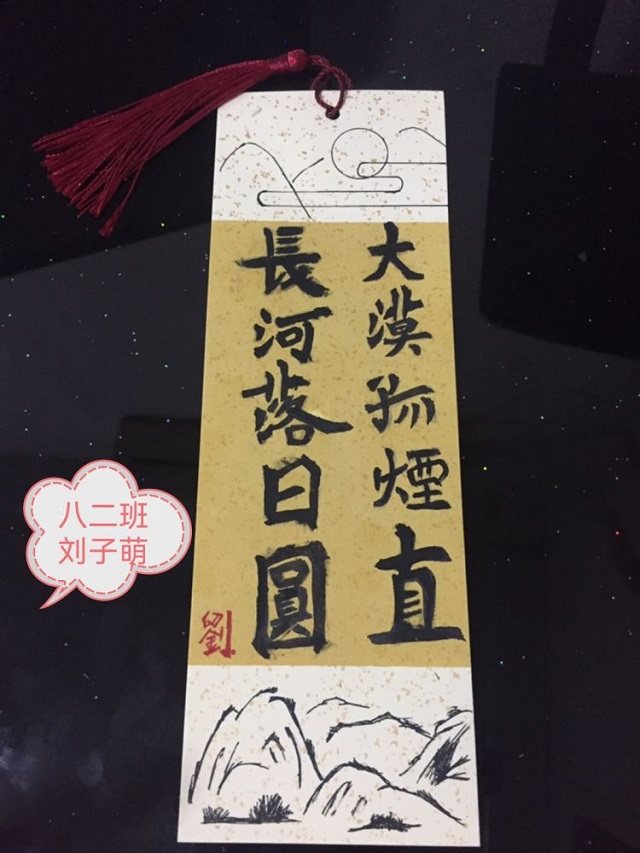 大漠孤煙直
長河落日圓
劉
八二班
刘子萌